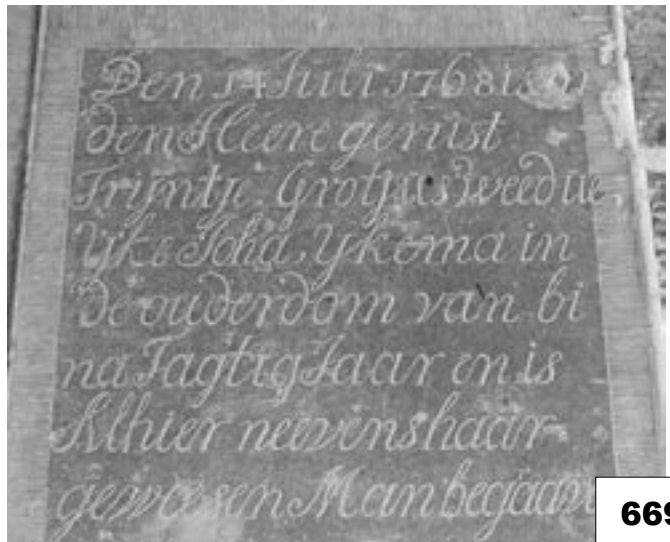 Den 14 Juli 1768 is in
den Heere gerust
Trijntje Grotjues weedue
Ijke Joha, Ijkema in
de ouderdom van bi
na Tagtig Jaar en is
Alhier neevens haar
geweesen Man begaan
669